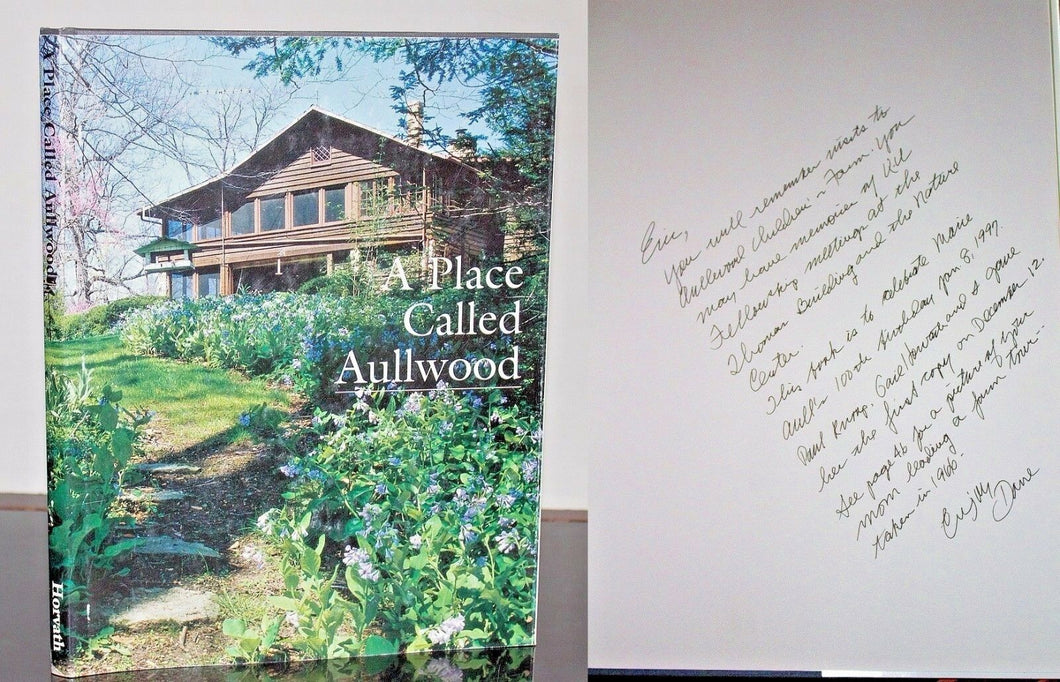 A Place Called Aullwood
Horvath
A Place
Called
Aullwood
Eric,
You will remember visits to
Aullwood Children's Farm. You
may have memories of UU
Fellowship meetings at the
Thomas Building and the Nature
Center.
This book is to celebrate Marie
Aull's 100th birthday Jan 8, 1997.
Paul Knoop, Gail Horvath and I gave
her the first copy on December 12.
See page 46 for a picture of your
mom leading a farm tour
taken in 1966.
Enjoy
Dave